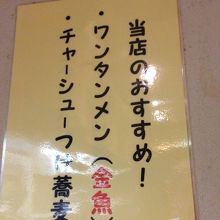 当店のおすすめ!
・ワンタンメン(金魚
・チャーシューつけ蕎麦